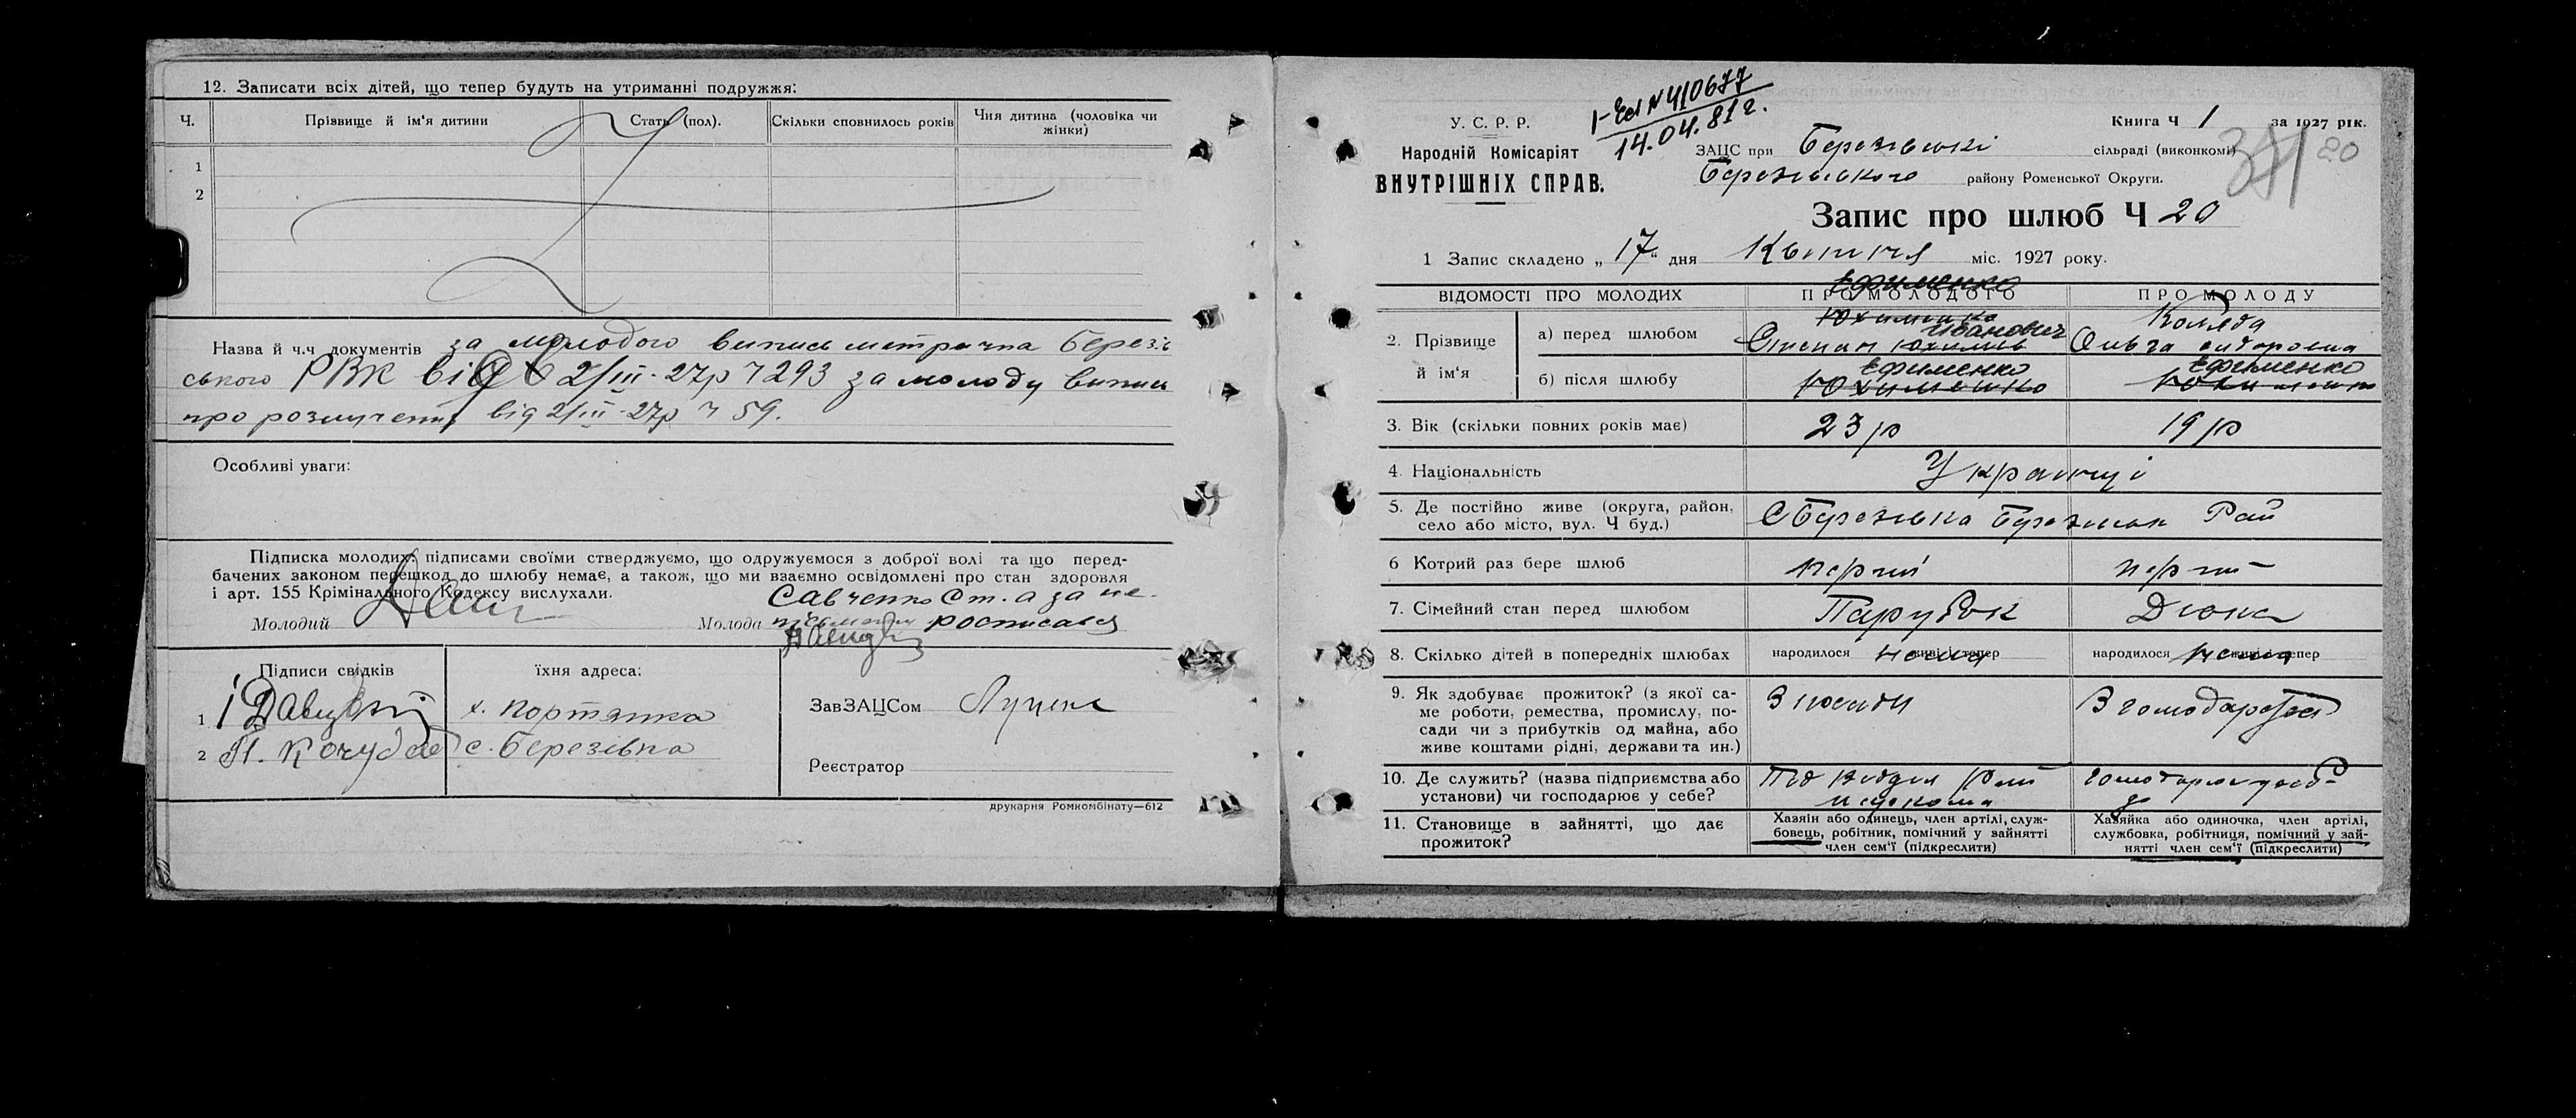 12. Записати всіх дітей, що тепер будуть на утриманні подружжя:
Ч.
Прізвище й ім'я дитини
Стать (пол).
Скільки сповнилось років
Чия дитина (чоловіка чи жінки)
1
2
Назва й ч.ч документів за молодого випись метрична Березів
ського РВК від 2/III-27р Ч 293 за молоду випись
про розлучення від 2/III-27р Ч 59.
Особливі уваги:
Підписка молодих: підписами своїми стверджуємо, що одружуємося з доброї волі та що перед-
бачених законом перешкод до шлюбу немає, а також, що ми взаємно освідомлені про стан здоровля
і арт. 155 Крімінального Кодексу вислухали.
Савченко Ст. а за не-
Молодий
Молода письменну росписався
Підписи свідків
їхня адреса:
1 І Давидов х. Портянка
2 П. Кочубей с. Березівка
ЗавЗАЦСом
Реєстратор
друкарня Ромкомбінату—612
У. С. Р. Р.
Народній Комісаріят
ВНУТРІШНІХ СПРАВ.
N 410677
14.04.81г.
Книга Ч 1 за 1927 рік.
ЗАЦС при Березівські сільраді (виконкомі)
20
Березівського району Роменської Округи.
Запис про шлюб Ч 20
1 Запис складено „17“ дня Квітня міс. 1927 року.
Ефименко
ВІДОМОСТІ ПРО МОЛОДИХ
ПРО МОЛОДОГО
ПРО МОЛОДУ
2. Прізвище й ім'я
а) перед шлюбом
Юхименко
Иванович
Степан Юхимів
Коляда
Ольга Сидоровна
б) після шлюбу
Ефименко
Юхименко
Ефименко
Юхименко
3. Вік (скільки повних років має)
23 р
19 р
4. Національність
Українці
5. Де постійно живе (округа, район,
село або місто, вул. Ч буд.)
С Березівка Березівськ Рай
6 Котрий раз бере шлюб
перший
перший
7. Сімейний стан перед шлюбом
Парубок
Дівка
8. Скілько дітей в попередніх шлюбах
народилося нема живі і тепер
народилося нема живі і тепер
9. Як здобуває прожиток? (з якої са-
ме роботи, ремества, промислу, по-
сади чи з прибутків од майна, або
живе коштами рідні, держави та ин.)
З посади
З господарства
10. Де служить? (назва підприємства або
установи) чи господарює у себе?
11. Становище в зайнятті, що дає
прожиток?
Хазяїн або одинець, член артілі, служ-
бовець, робітник, помічний у зайнятті
член сем'ї (підкреслити)
Хазяйка або одиночка, член артілі,
службовка, робітниця, помічний у зай-
нятті член сем'ї (підкреслити)